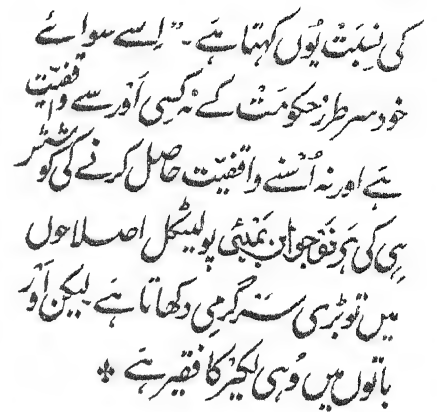 کی نِسبَتْ یُوں کہتا ہَے۔ ” اِسے سِوائے
خود سر طرزِ حکومَتْ کے نہ کِسی اَوْر سے واقفِیّت
ہَے اور نہ اُسْنے واقفِیّت حاصِل کرنے کی کوشش
ہی کی ہَر نَوجوان بَمْبَئی پولیٹکل اصلاحوں
میں تو بڑی سَرْگرمی دکھاتا ہَے لیکِن اَوْر
باتوں میں وُہی لکِیْر کا فقیر ہَے ۞